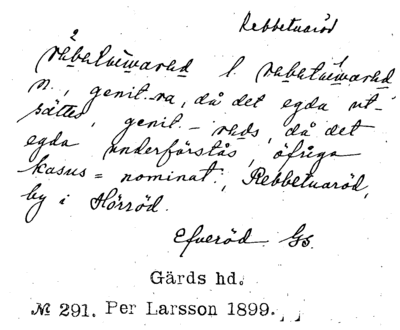 Rebbetuaröd
rabatuwarad l. rabatuwarad
n., genit. -ra, då det egda ut-
sättes, genit. - rads, då det
egda underförstås, öfriga
kasus = nominat., Rebbetuaröd,
by i Hörröd.
Efveröd. Gs.
Gärds hd.
№ 291. Per Larsson 1899.